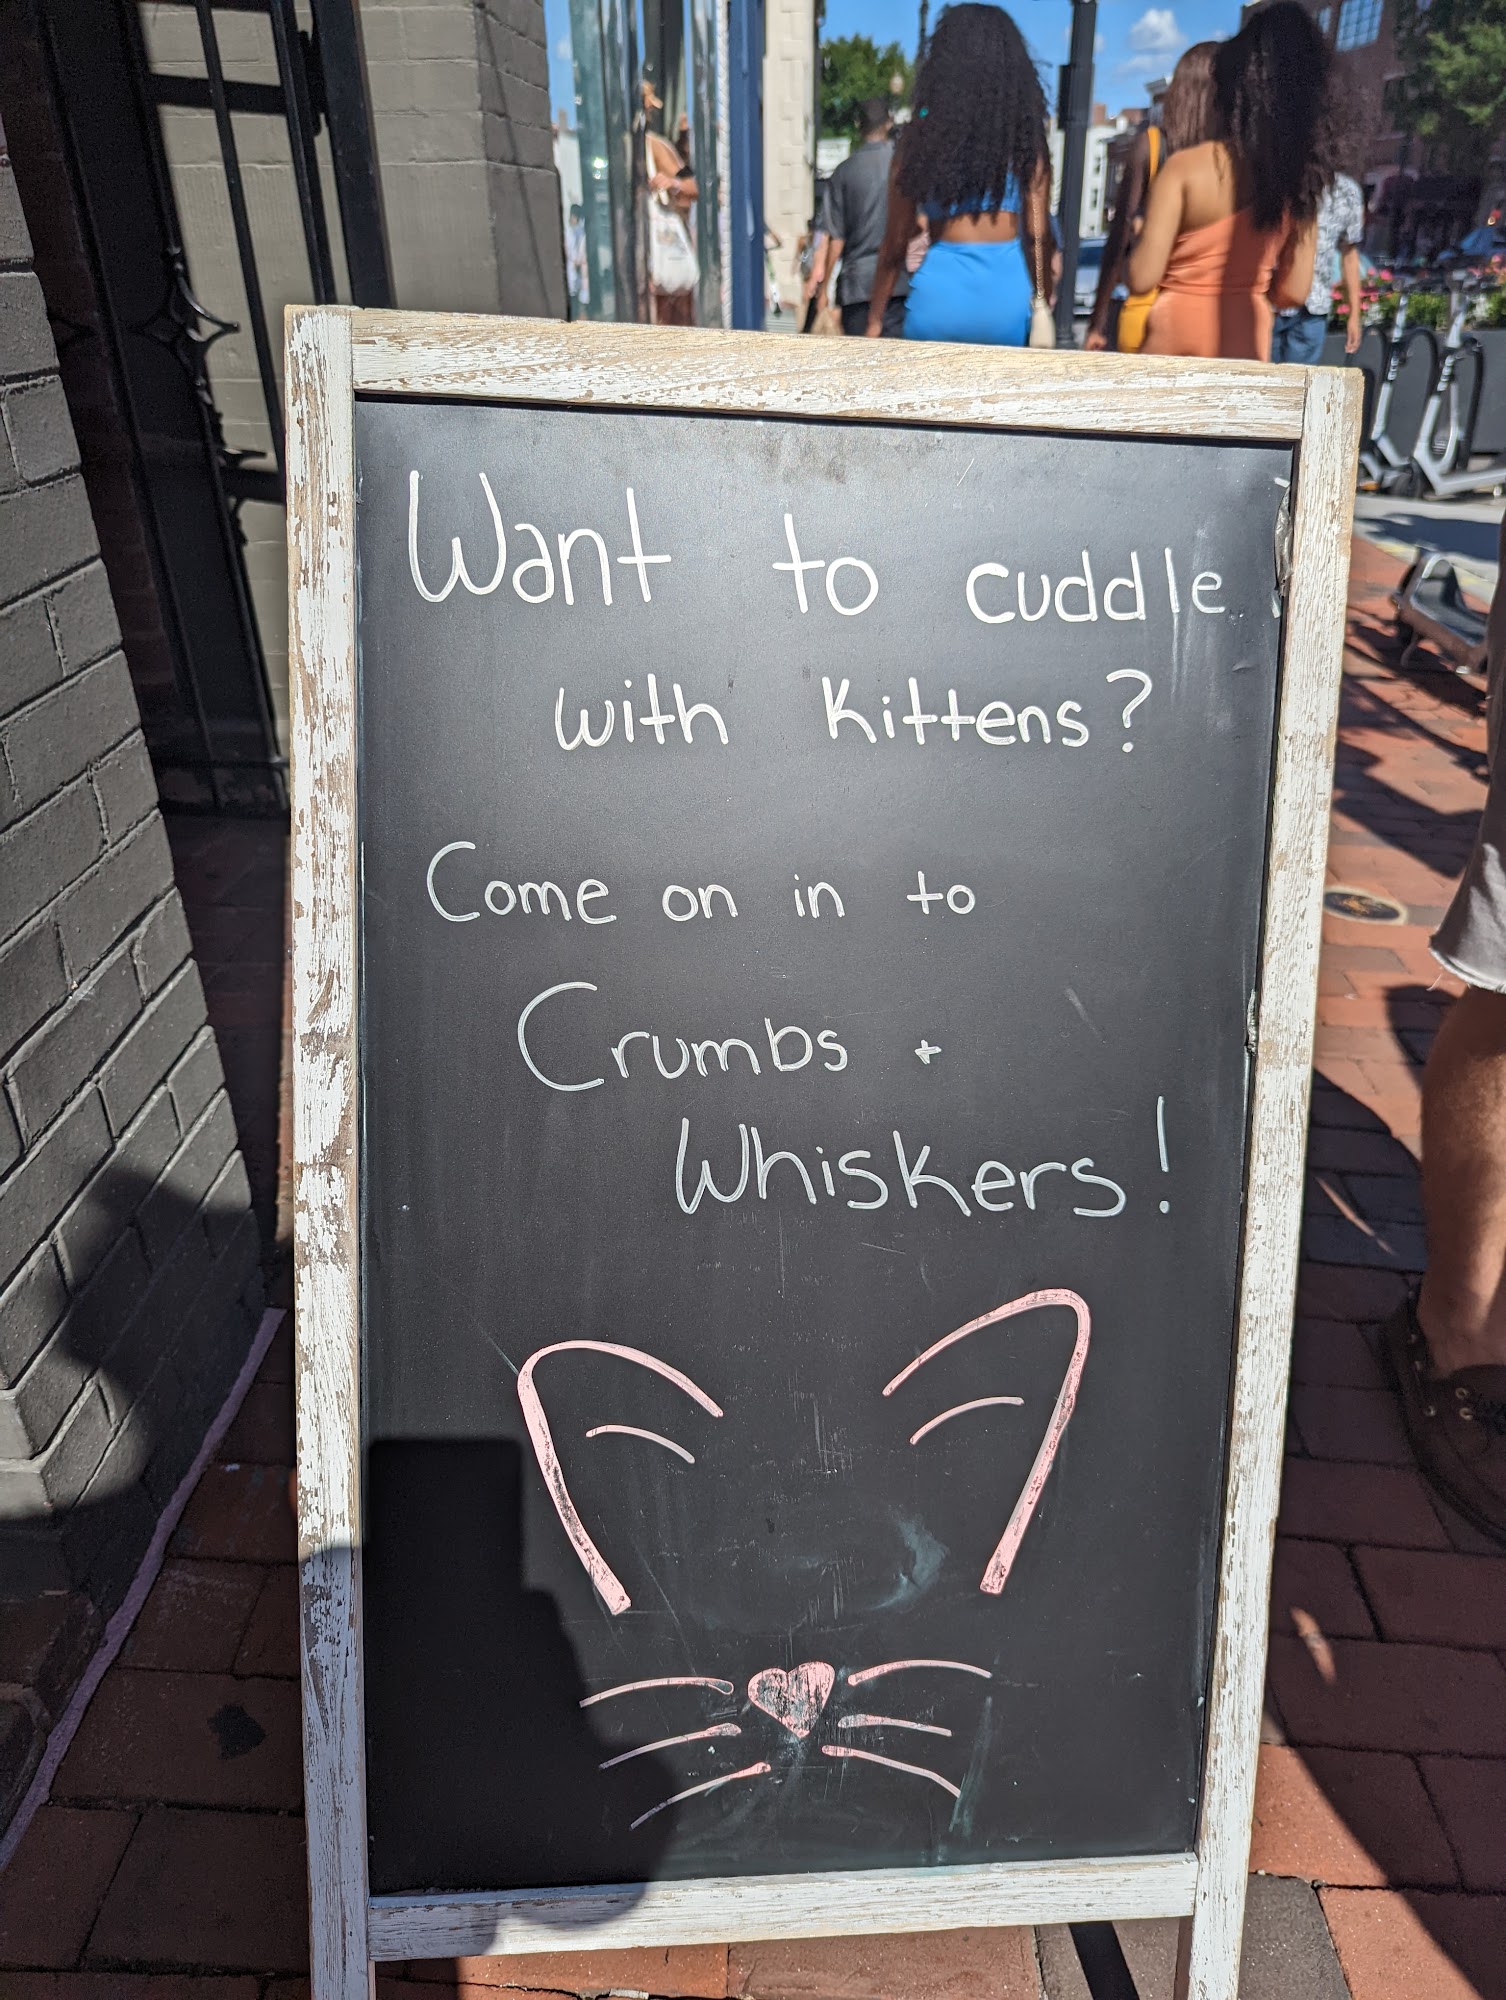 Want to cuddle
with kittens?
Come on in to
Crumbs +
Whiskers!